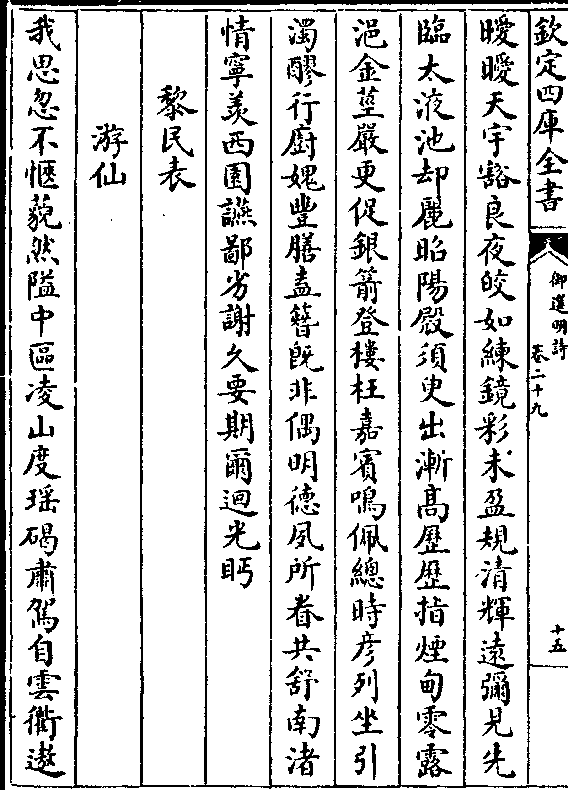 欽定四庫全書
御選明詩
卷二十九
十五
曖曖天宇豁良夜皎如練鏡彩未盈規清輝遠彌見先
臨太液池却麗昭陽殿須臾出漸髙歴歴指煙甸零露
浥金莖嚴更促銀箭登樓枉嘉賓鳴佩總時彦列坐引
濁醪行廚媿豐膳盍簪旣非偶明德夙所眷共舒南渚
情寧羨西園讌鄙劣謝久要期爾迴光眄
黎民表
游仙
我思忽不愜藐然隘中區凌山度瑶碣肅駕自雲衢遨